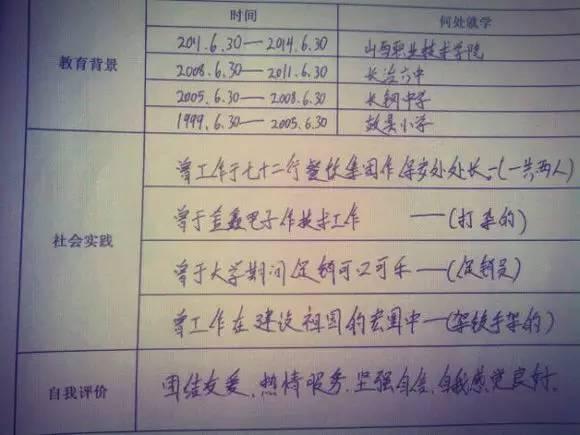 时间 何处就学
教育背景
2011.6.30—2014.6.30 山西职业技术学院
2008.6.30—2011.6.30 长治六中
2005.6.30—2008.6.30 长钢中学
1999.6.30—2005.6.30 故县小学
社会实践
曾工作于七十二行餐饮集团作保安处处长—(一共两人)
曾于金鑫电子作技术工作 ——(打杂的)
曾于大学期间促销可口可乐——(促销员)
曾工作在建设祖国的宏图中—(架铁手架的)
自我评价
团结友爱、热情服务、坚强自信、自我感觉良好.